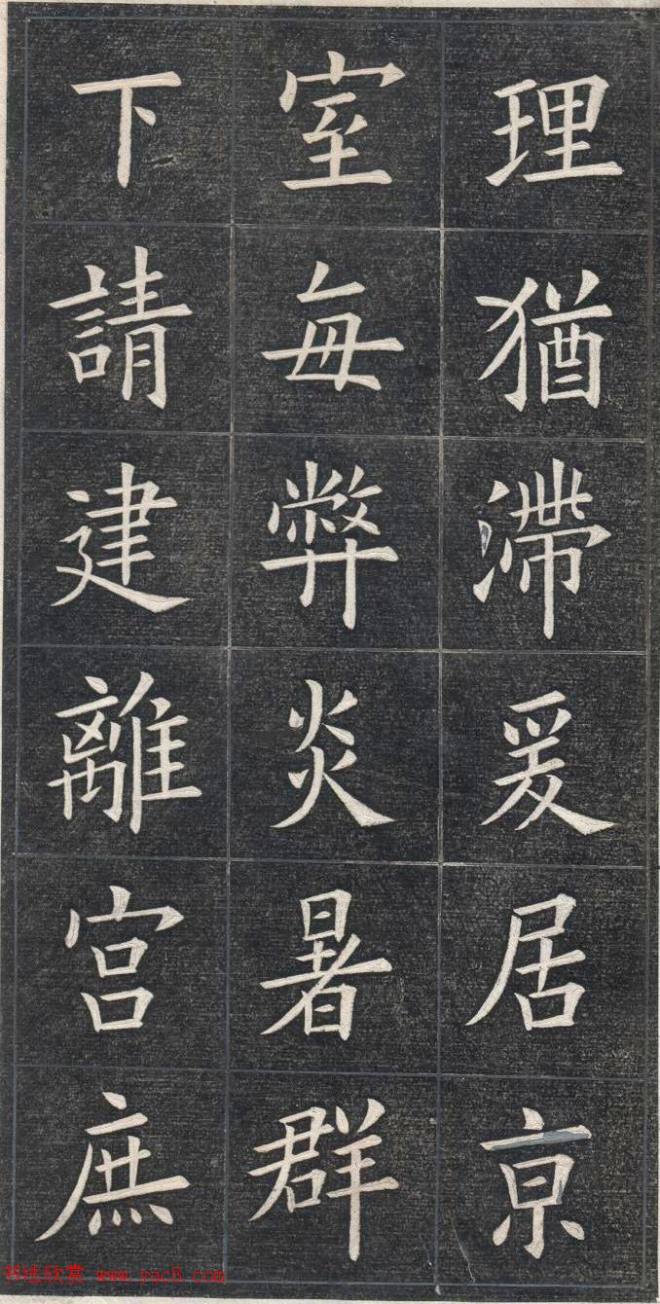 理猶滯爰居京
室每弊炎暑群
下請建離宮庶
书法欣赏 www.yac8.com